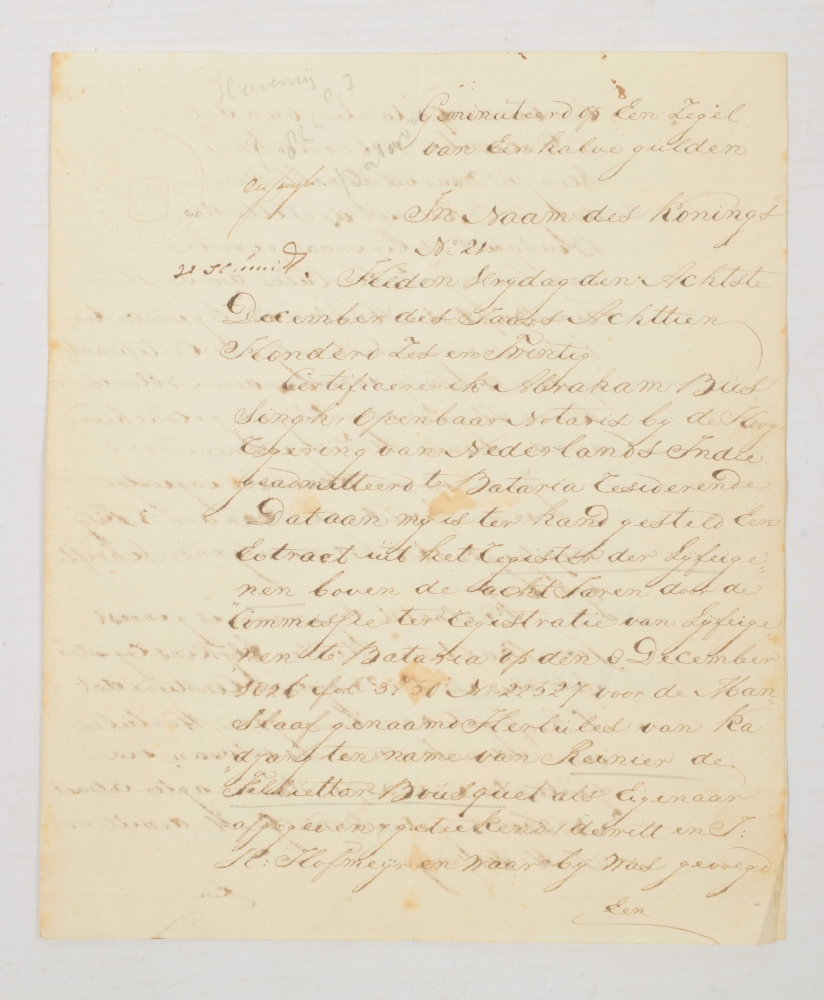 Slavernij
Geminuteerd op Een Zegel
van Een halve gulden
In Naam des Konings
No. 21
Heden Vrydag den Achtste
December des Jaars Achttien
Honderd Zes en Twintig
Certificeere ik Abraham Büs
Singh, Openbaar Notaris by de Hooge
Regering van Nederlands Indie
geadmitteerd te Batavia Residerende
Dat aan my is ter hand gesteld Een
Extract uit het Register der Lyfeige„
nen boven de acht Jaren door de
Commissie ter registratie van Lyfeige„
nen te Batavia op den 8 December
1826 fol: 3750 No. 22527 voor de Man„
Slaaf genaamd Herkules van Ka
djang ten name van Reinier de
Filliettaz Bousquet als Eigenaar
afgegeven, geteekend, de Witt en J:
H: Hofmeyr en waar by was gevoegd
Een